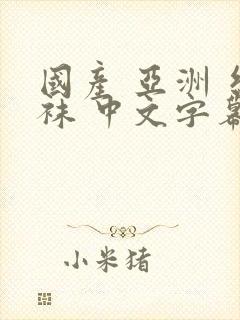 國産 亞洲
袜 中文字幕
小米猪